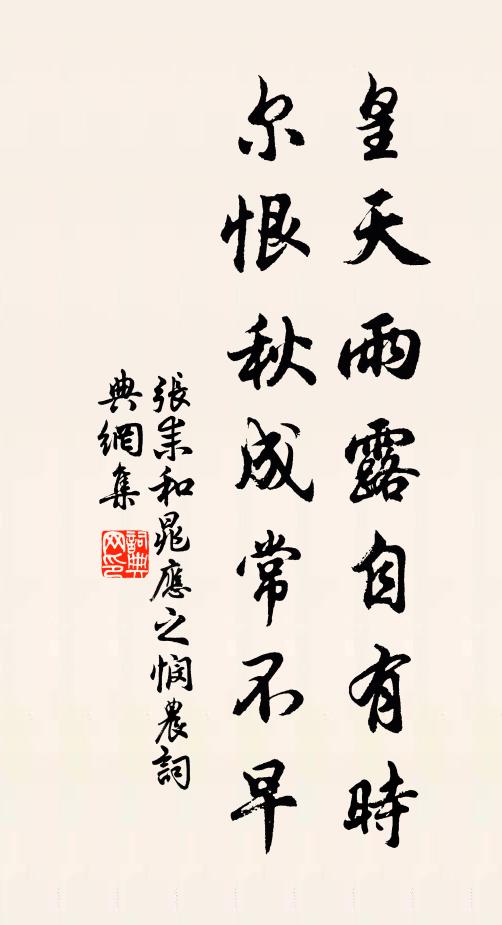 皇天雨露自有時
尔恨秋成常不早
張耒和晁應之憫農詞
典網集
詞典
网印